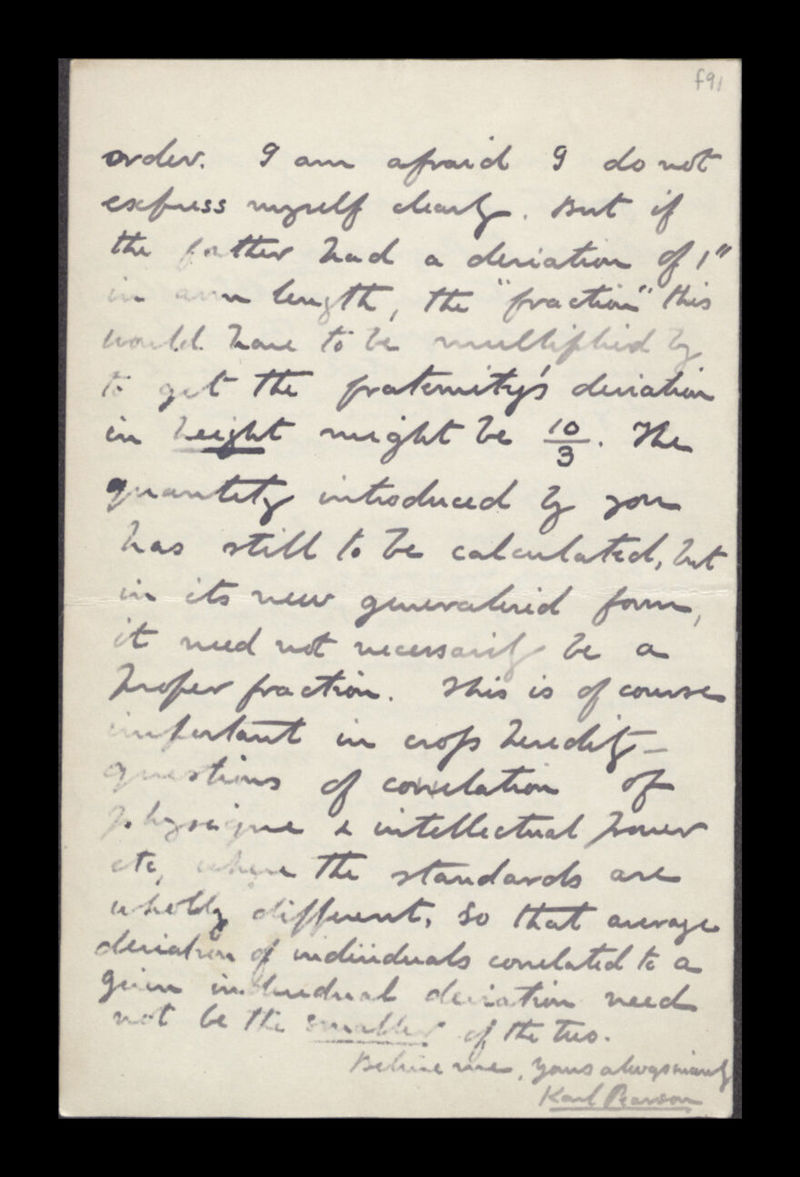 f91
order. I am afraid I do not
express myself clearly. But if
the father had a deviation of 1"
in arm length, the "fraction" this
would have to be multiplied by
to get the fraternity's deviation
in height might be 10/3. The
quantity introduced by you
has still to be calculated, but
in its new generalised form,
it need not necessarily be a
proper fraction. This is of course
important in cross heredity –
questions of correlation of
physique & intellectual power
etc, where the standards are
wholly different, so that average
deviation of individuals correlated to a
given individual deviation need
not be the smaller of the two.
Believe me, yours always sincerely
Karl Pearson